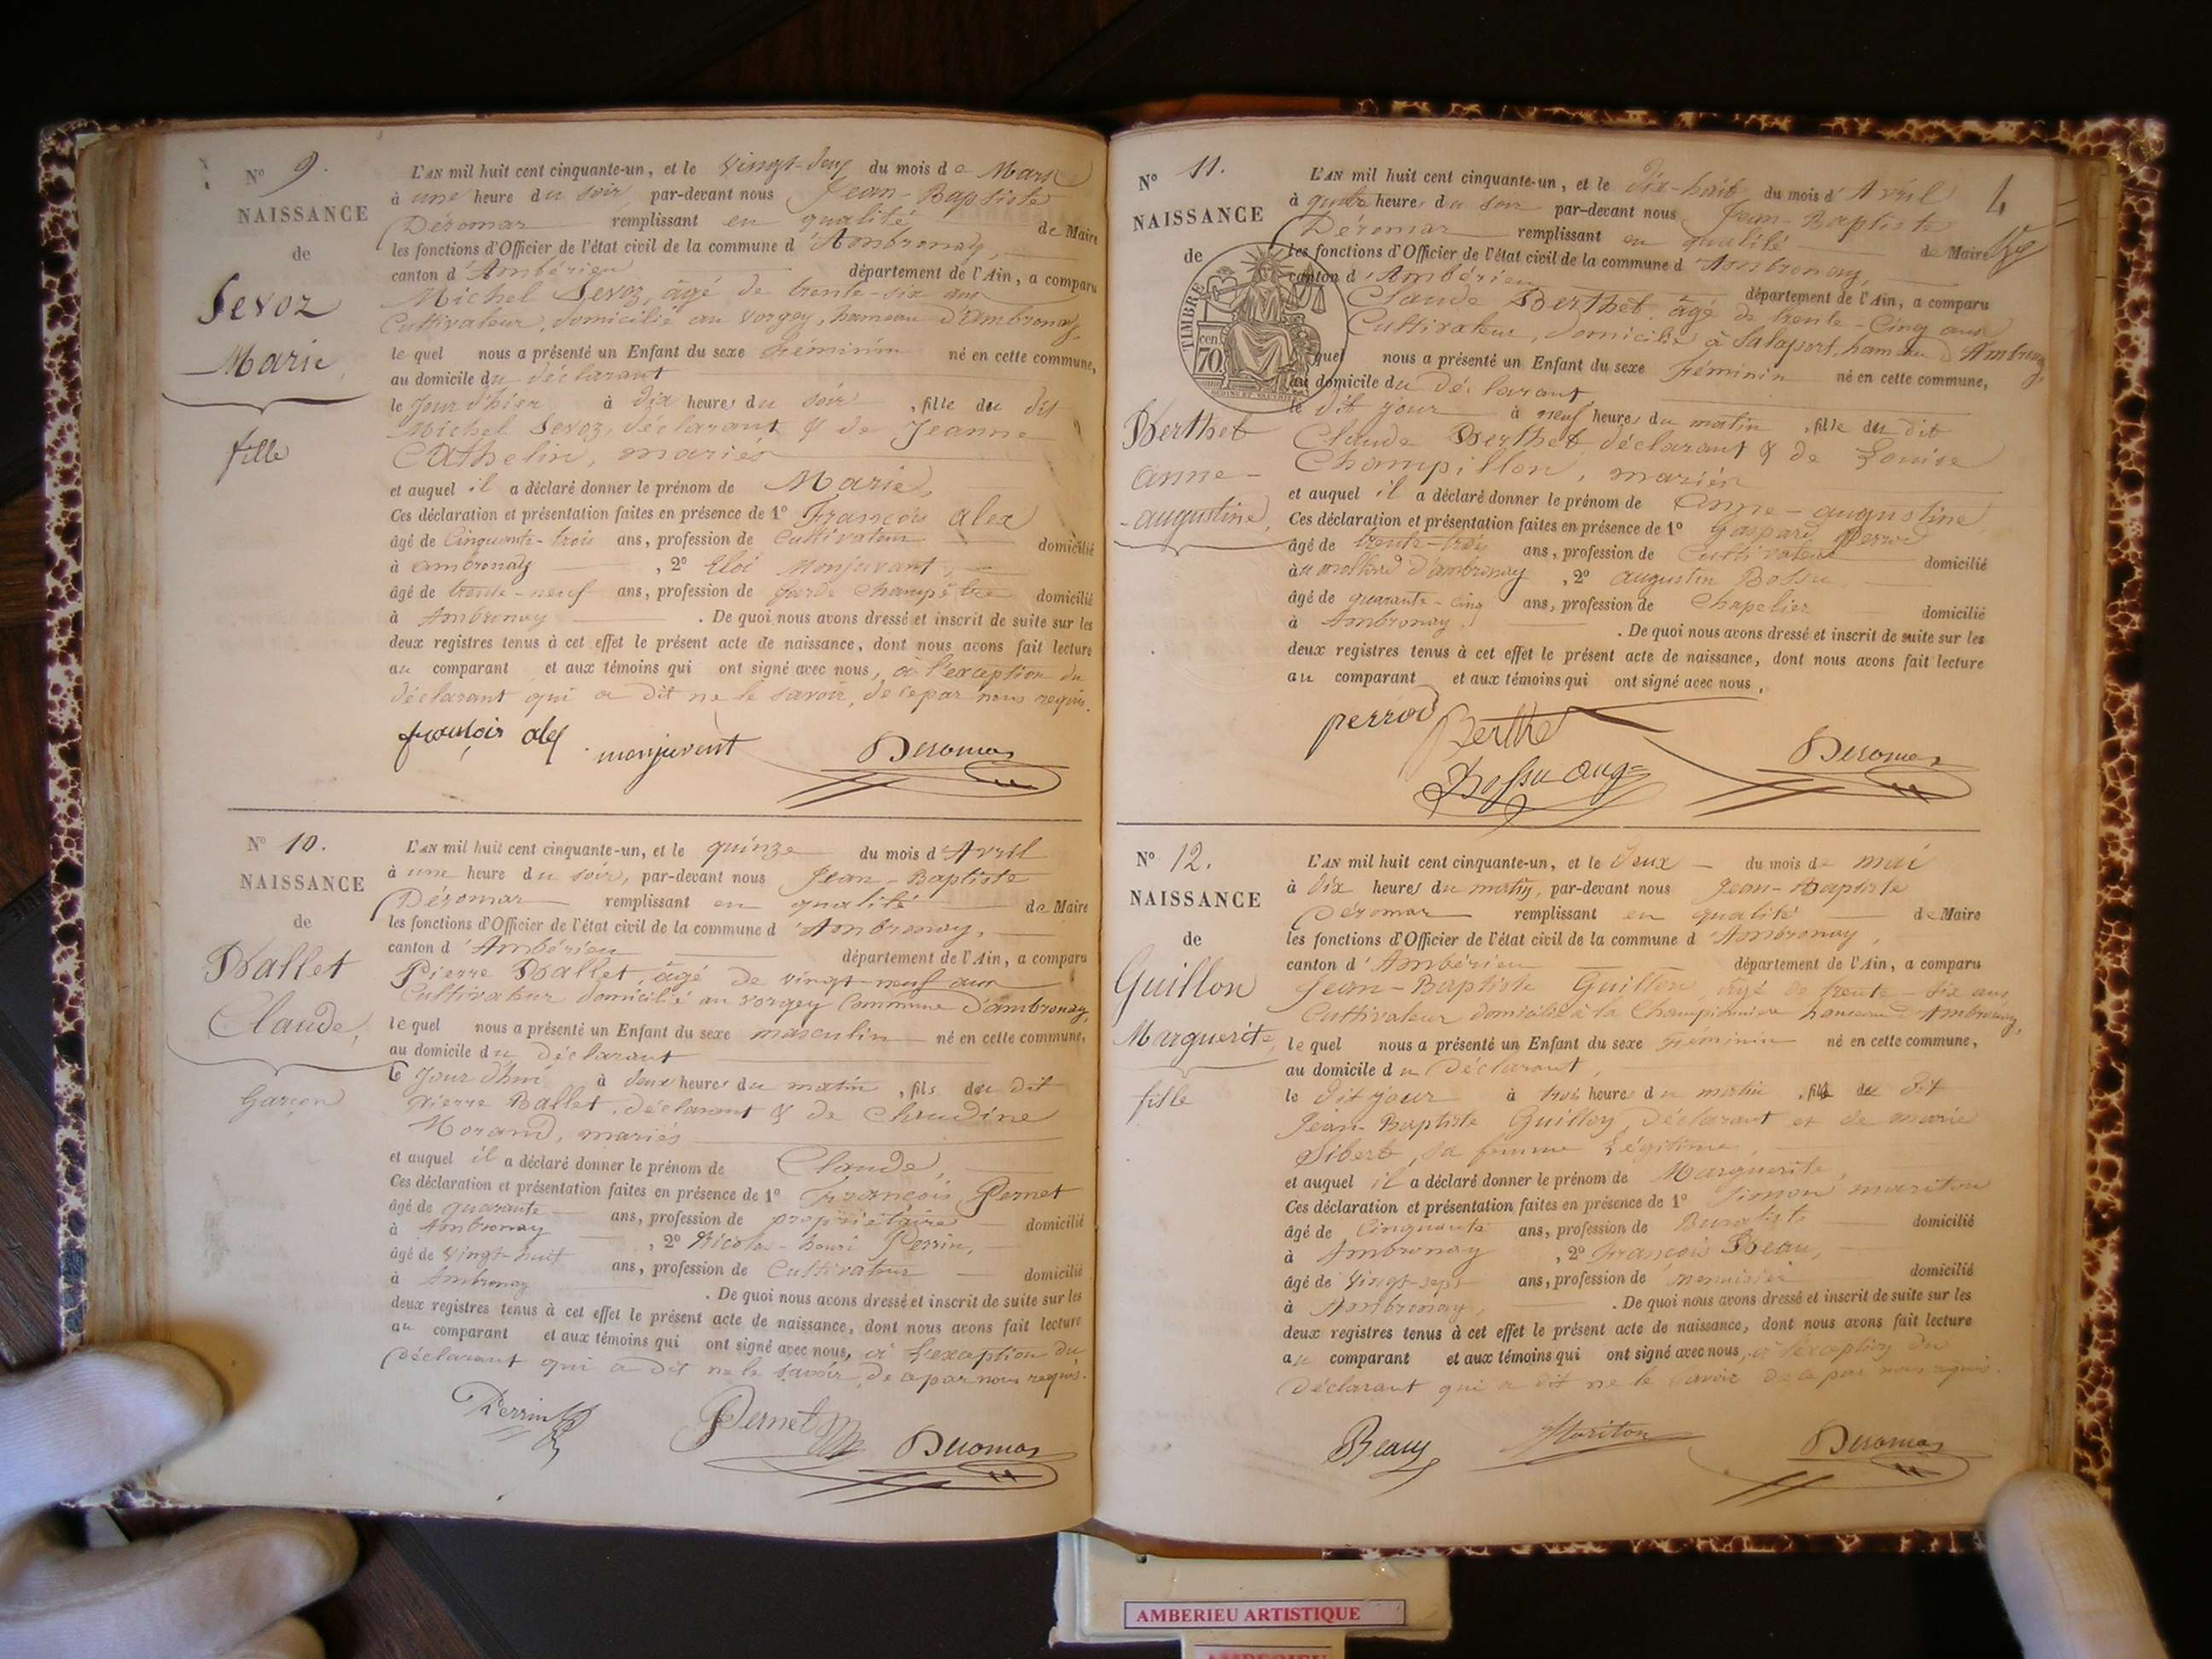 N° 9.
NAISSANCE
de
Sevoz
Marie,
fille
L'AN mil huit cent cinquante-un, et le vingt-deux du mois de Mars
à une heure du soir, par-devant nous Jean-Baptiste
Déromas remplissant en qualité de Maire
les fonctions d'Officier de l'état civil de la commune d'Ambronay,
canton d'Ambérieu département de l'Ain, a comparu
Michel Sevoz, âgé de trente-six ans
Cultivateur, domicilié au Vorgey, hameau d'Ambronay,
le quel nous a présenté un Enfant du sexe féminin né en cette commune,
au domicile du déclarant
le Jour d'hier à dix heures du soir, fille du dit
Michel Sevoz, déclarant & de Jeanne
Cathelin, mariés
et auquel il a déclaré donner le prénom de Marie,
Ces déclaration et présentation faites en présence de 1° François Alex
âgé de Cinquante-trois ans, profession de Cultivateur domicilié
à Ambronay, 2° Eloi Monjuvent,
âgé de trente-neuf ans, profession de garde Champêtre domicilié
à Ambronay. De quoi nous avons dressé et inscrit de suite sur les
deux registres tenus à cet effet le présent acte de naissance, dont nous avons fait lecture
au comparant et aux témoins qui ont signé avec nous, à l'exception du
déclarant qui a dit ne le savoir, de ce par nous requis.
françois alex monjuvent Deromas
N° 10.
NAISSANCE
de
Ballet
Claude,
Garçon
L'AN mil huit cent cinquante-un, et le quinze du mois d'Avril
à une heure du soir, par-devant nous Jean-Baptiste
Déromas remplissant en qualité de Maire
les fonctions d'Officier de l'état civil de la commune d'Ambronay,
canton d'Ambérieu département de l'Ain, a comparu
Pierre Ballet, âgé de vingt-neuf ans
Cultivateur domicilié au Vorgey Commune d'Ambronay,
le quel nous a présenté un Enfant du sexe masculin né en cette commune,
au domicile du Déclarant
le Jour d'hui à deux heures du matin, fils du dit
Pierre Ballet, déclarant & de Claudine
Morand, mariés
et auquel il a déclaré donner le prénom de Claude,
Ces déclaration et présentation faites en présence de 1° François Pernet
âgé de quarante ans, profession de propriétaire domicilié
à Ambronay, 2° Nicolas-henri Perrin,
âgé de vingt-huit ans, profession de Cultivateur domicilié
à Ambronay. De quoi nous avons dressé et inscrit de suite sur les
deux registres tenus à cet effet le présent acte de naissance, dont nous avons fait lecture
au comparant et aux témoins qui ont signé avec nous, à l'exception du
Déclarant qui a dit ne le savoir, de ce par nous requis.
Perrin Pernet Deromas
N° 11.
NAISSANCE
de
TIMBRE
70 cen
Berthet
anne-
-augustine,
4
L'AN mil huit cent cinquante-un, et le dix-huit du mois d'Avril
à quatre heures du soir par-devant nous Jean-Baptiste
Déromas remplissant en qualité de Maire
les fonctions d'Officier de l'état civil de la commune d'Ambronay,
canton d'Ambérieu département de l'Ain, a comparu
Claude Berthet, âgé de trente-Cinq ans
Cultivateur, domicilié à Salaport, hameau d'Ambronay,
quel nous a présenté un Enfant du sexe féminin né en cette commune,
au domicile du Déclarant,
le dit jour à neuf heures du matin, fille du dit
Claude Berthet, déclarant & de Louise
Champillon, mariés
et auquel il a déclaré donner le prénom de Anne-augustine
Ces déclaration et présentation faites en présence de 1° Gaspard Perrod
âgé de trente-trois ans, profession de Cultivateur domicilié
au mollard d'ambronay, 2° augustin Bossu
âgé de quarante-cinq ans, profession de Chapelier domicilié
à Ambronay. De quoi nous avons dressé et inscrit de suite sur les
deux registres tenus à cet effet le présent acte de naissance, dont nous avons fait lecture
au comparant et aux témoins qui ont signé avec nous,
perrod Berthet Deromas
Bossu aug=
N° 12.
NAISSANCE
de
Guillon
Marguerite,
fille
L'AN mil huit cent cinquante-un, et le deux du mois de mai
à dix heures du matin, par-devant nous Jean-Baptiste
Déromas remplissant en qualité de Maire
les fonctions d'Officier de l'état civil de la commune d'Ambronay,
canton d'Ambérieu département de l'Ain, a comparu
Jean-Baptiste Guillon, âgé de trente-six ans,
Cultivateur domicilié à la Championnière hameau d'Ambronay,
le quel nous a présenté un Enfant du sexe féminin né en cette commune,
au domicile du Déclarant,
le dit jour à trois heures du matin, fille du dit
Jean-Baptiste Guillon, Déclarant et de marie
Sibert, sa femme légitime,
et auquel il a déclaré donner le prénom de Marguerite,
Ces déclaration et présentation faites en présence de 1° Simon mariton
âgé de Cinquante ans, profession de Buraliste domicilié
à Ambronay, 2° François Beau,
âgé de vingt-sept ans, profession de menuisier domicilié
à Ambronay, . De quoi nous avons dressé et inscrit de suite sur les
deux registres tenus à cet effet le présent acte de naissance, dont nous avons fait lecture
au comparant et aux témoins qui ont signé avec nous, à l'exception du
Déclarant qui a dit ne le savoir de ce par nous requis.
Beau Mariton Deromas
AMBERIEU ARTISTIQUE
AMBERIEU